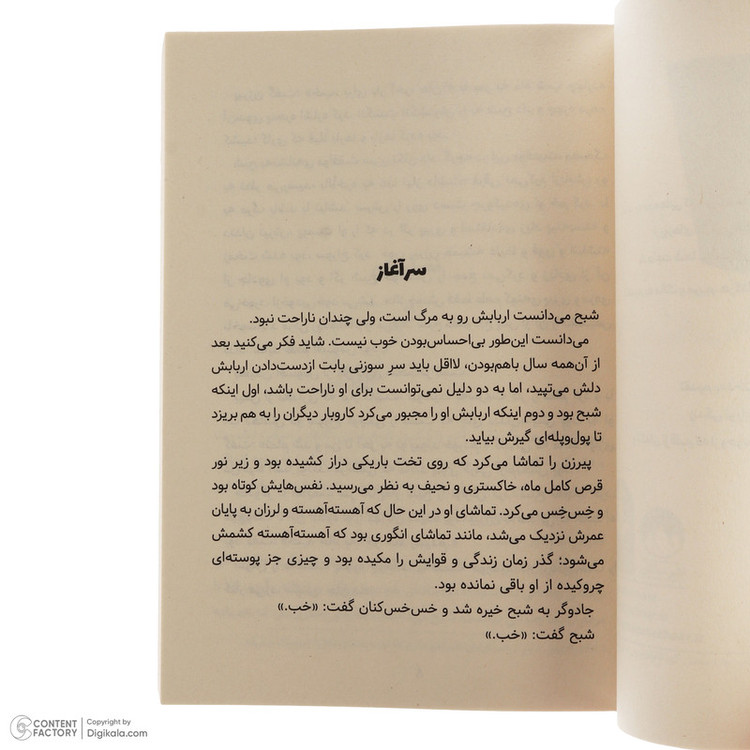 سرآغاز
شبح می‌دانست اربابش رو به مرگ است، ولی چندان ناراحت نبود.
می‌دانست این‌طور بی‌احساس‌بودن خوب نیست. شاید فکر می‌کنید بعد
از آن‌همه سال باهم‌بودن، لااقل باید سرِ سوزنی بابت ازدست‌دادن اربابش
دلش می‌تپید، اما به دو دلیل نمی‌توانست برای او ناراحت باشد، اول اینکه
شبح بود و دوم اینکه اربابش او را مجبور می‌کرد کاروبار دیگران را به هم بریزد
تا پول‌وپله‌ای گیرش بیاید.
پیرزن را تماشا می‌کرد که روی تخت باریکی دراز کشیده بود و زیر نور
قرص کامل ماه، خاکستری و نحیف به نظر می‌رسید. نفس‌هایش کوتاه بود
و خِس‌خِس می‌کرد. تماشای او در این حال که آهسته‌آهسته و لرزان به پایان
عمرش نزدیک می‌شد، مانند تماشای انگوری بود که آهسته‌آهسته کشمش
می‌شود؛ گذر زمان زندگی و قوایش را مکیده بود و چیزی جز پوسته‌ای
چروکیده از او باقی نمانده بود.
جادوگر به شبح خیره شد و خس‌خس‌کنان گفت: «خب.»
شبح گفت: «خب.»
CONTENT FACTORY
Copyright by
Digikala.com